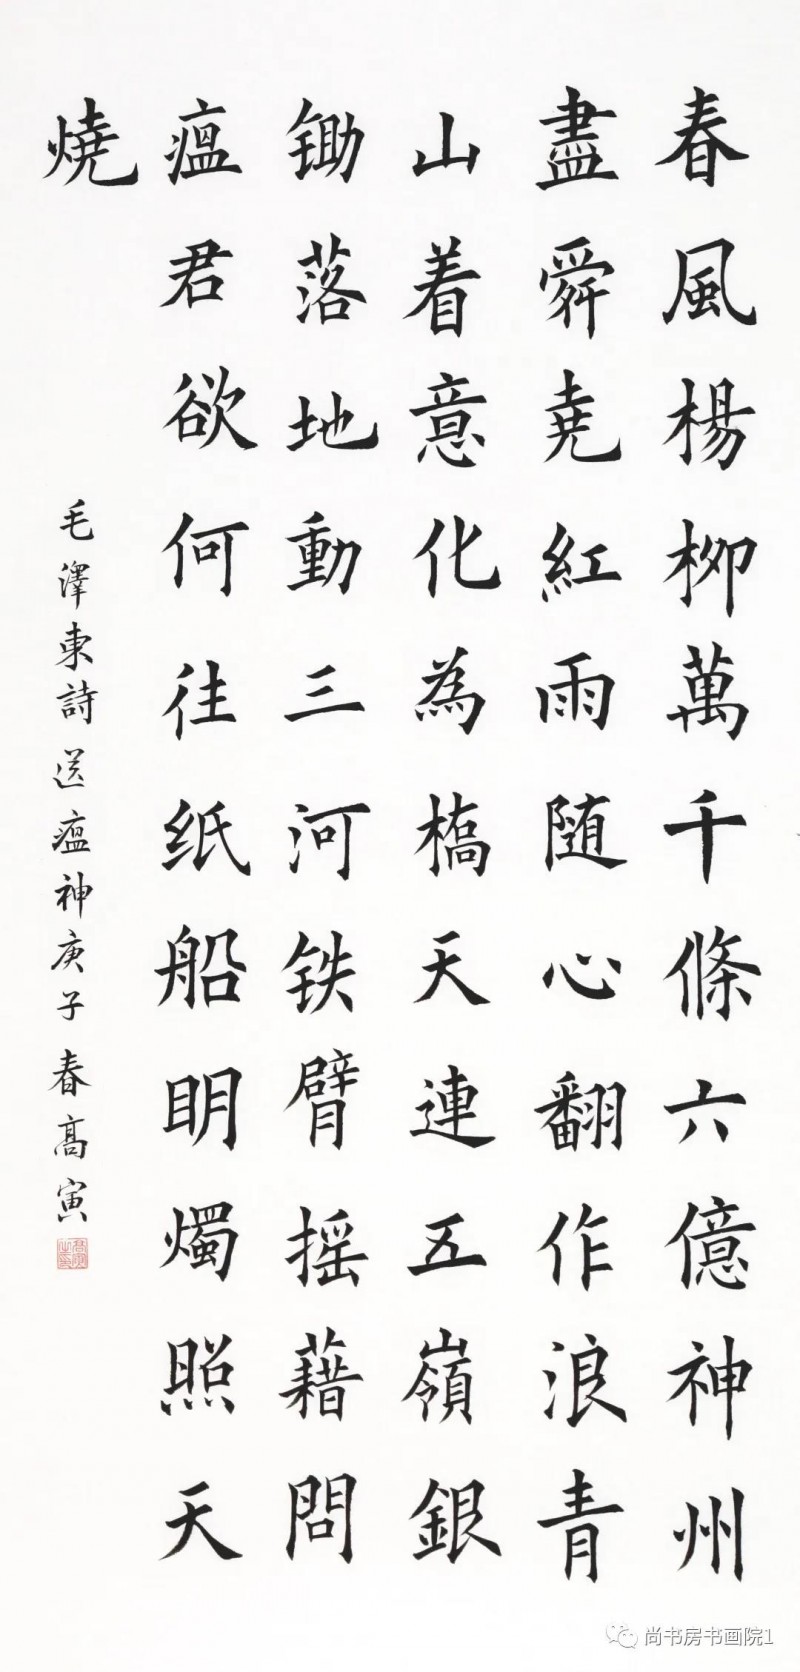 春風楊柳萬千條六億神州
盡舜堯紅雨随心翻作浪青
山着意化為橋天連五嶺銀
锄落地動三河铁臂摇藉問
瘟君欲何往纸船明燭照天
燒
毛澤東詩送瘟神庚子春高寅
尚书房书画院1